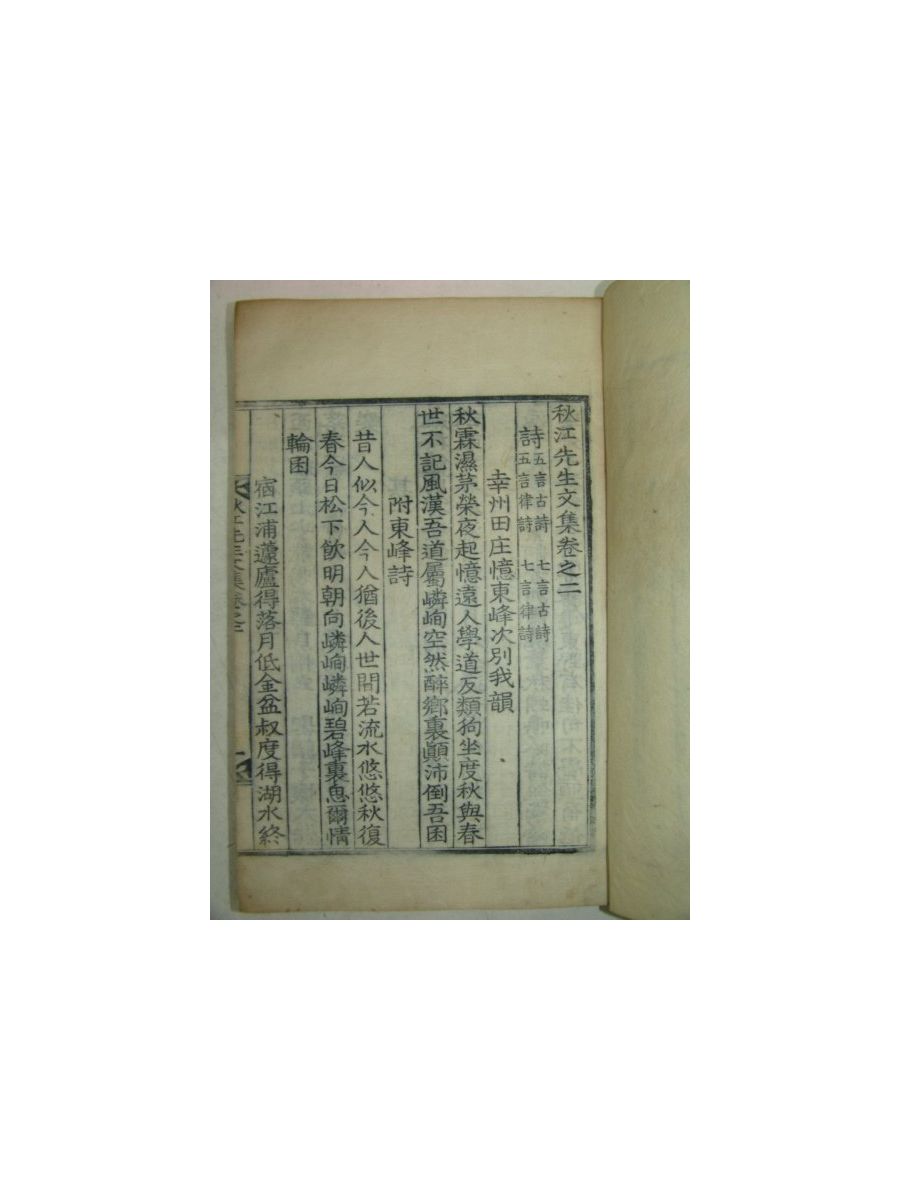 秋江先生文集卷之二
詩五言古詩 七言古詩 五言律詩 七言律詩
幸州田庄憶東峰次別我韻
秋霖濕茅榮夜起憶遠人學道反類狗坐度秋與春
世不記風漢吾道屬嶙峋空然醉鄉裏顚沛倒吾囷
附東峰詩
昔人似今人今人猶後人世間若流水悠悠秋復
春今日松下飮明朝向嶙峋嶙峋碧峰裏思爾情
輪囷
宿江浦蘧廬得落月低金盆叔度得湖水終